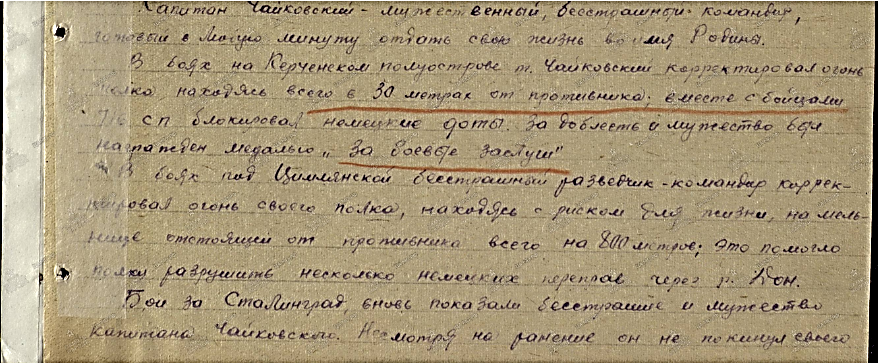 Капитан Чайковский - мужественный, бесстрашный командир,
готовый в любую минуту отдать свою жизнь во имя Родины.
В боях на Керченском полуострове т. Чайковский корректировал огонь
полка находясь всего в 30 метрах от противника; вместе с бойцами
сп блокировал немецкие доты. За доблесть и мужество был
награжден медалью „За боевые заслуги"
В боях под Цимлянской бесстрашный разведчик-командир коррек-
тировал огонь своего полка, находясь с риском для жизни, на мель-
нице отстоящей от противника всего на 800 метров; это помогло
полку разрушить несколько немецких переправ через р. Дон.
Бои за Сталинград, вновь показали бесстрашие и мужество
капитана Чайковского. Несмотря на ранение он не покинул своего